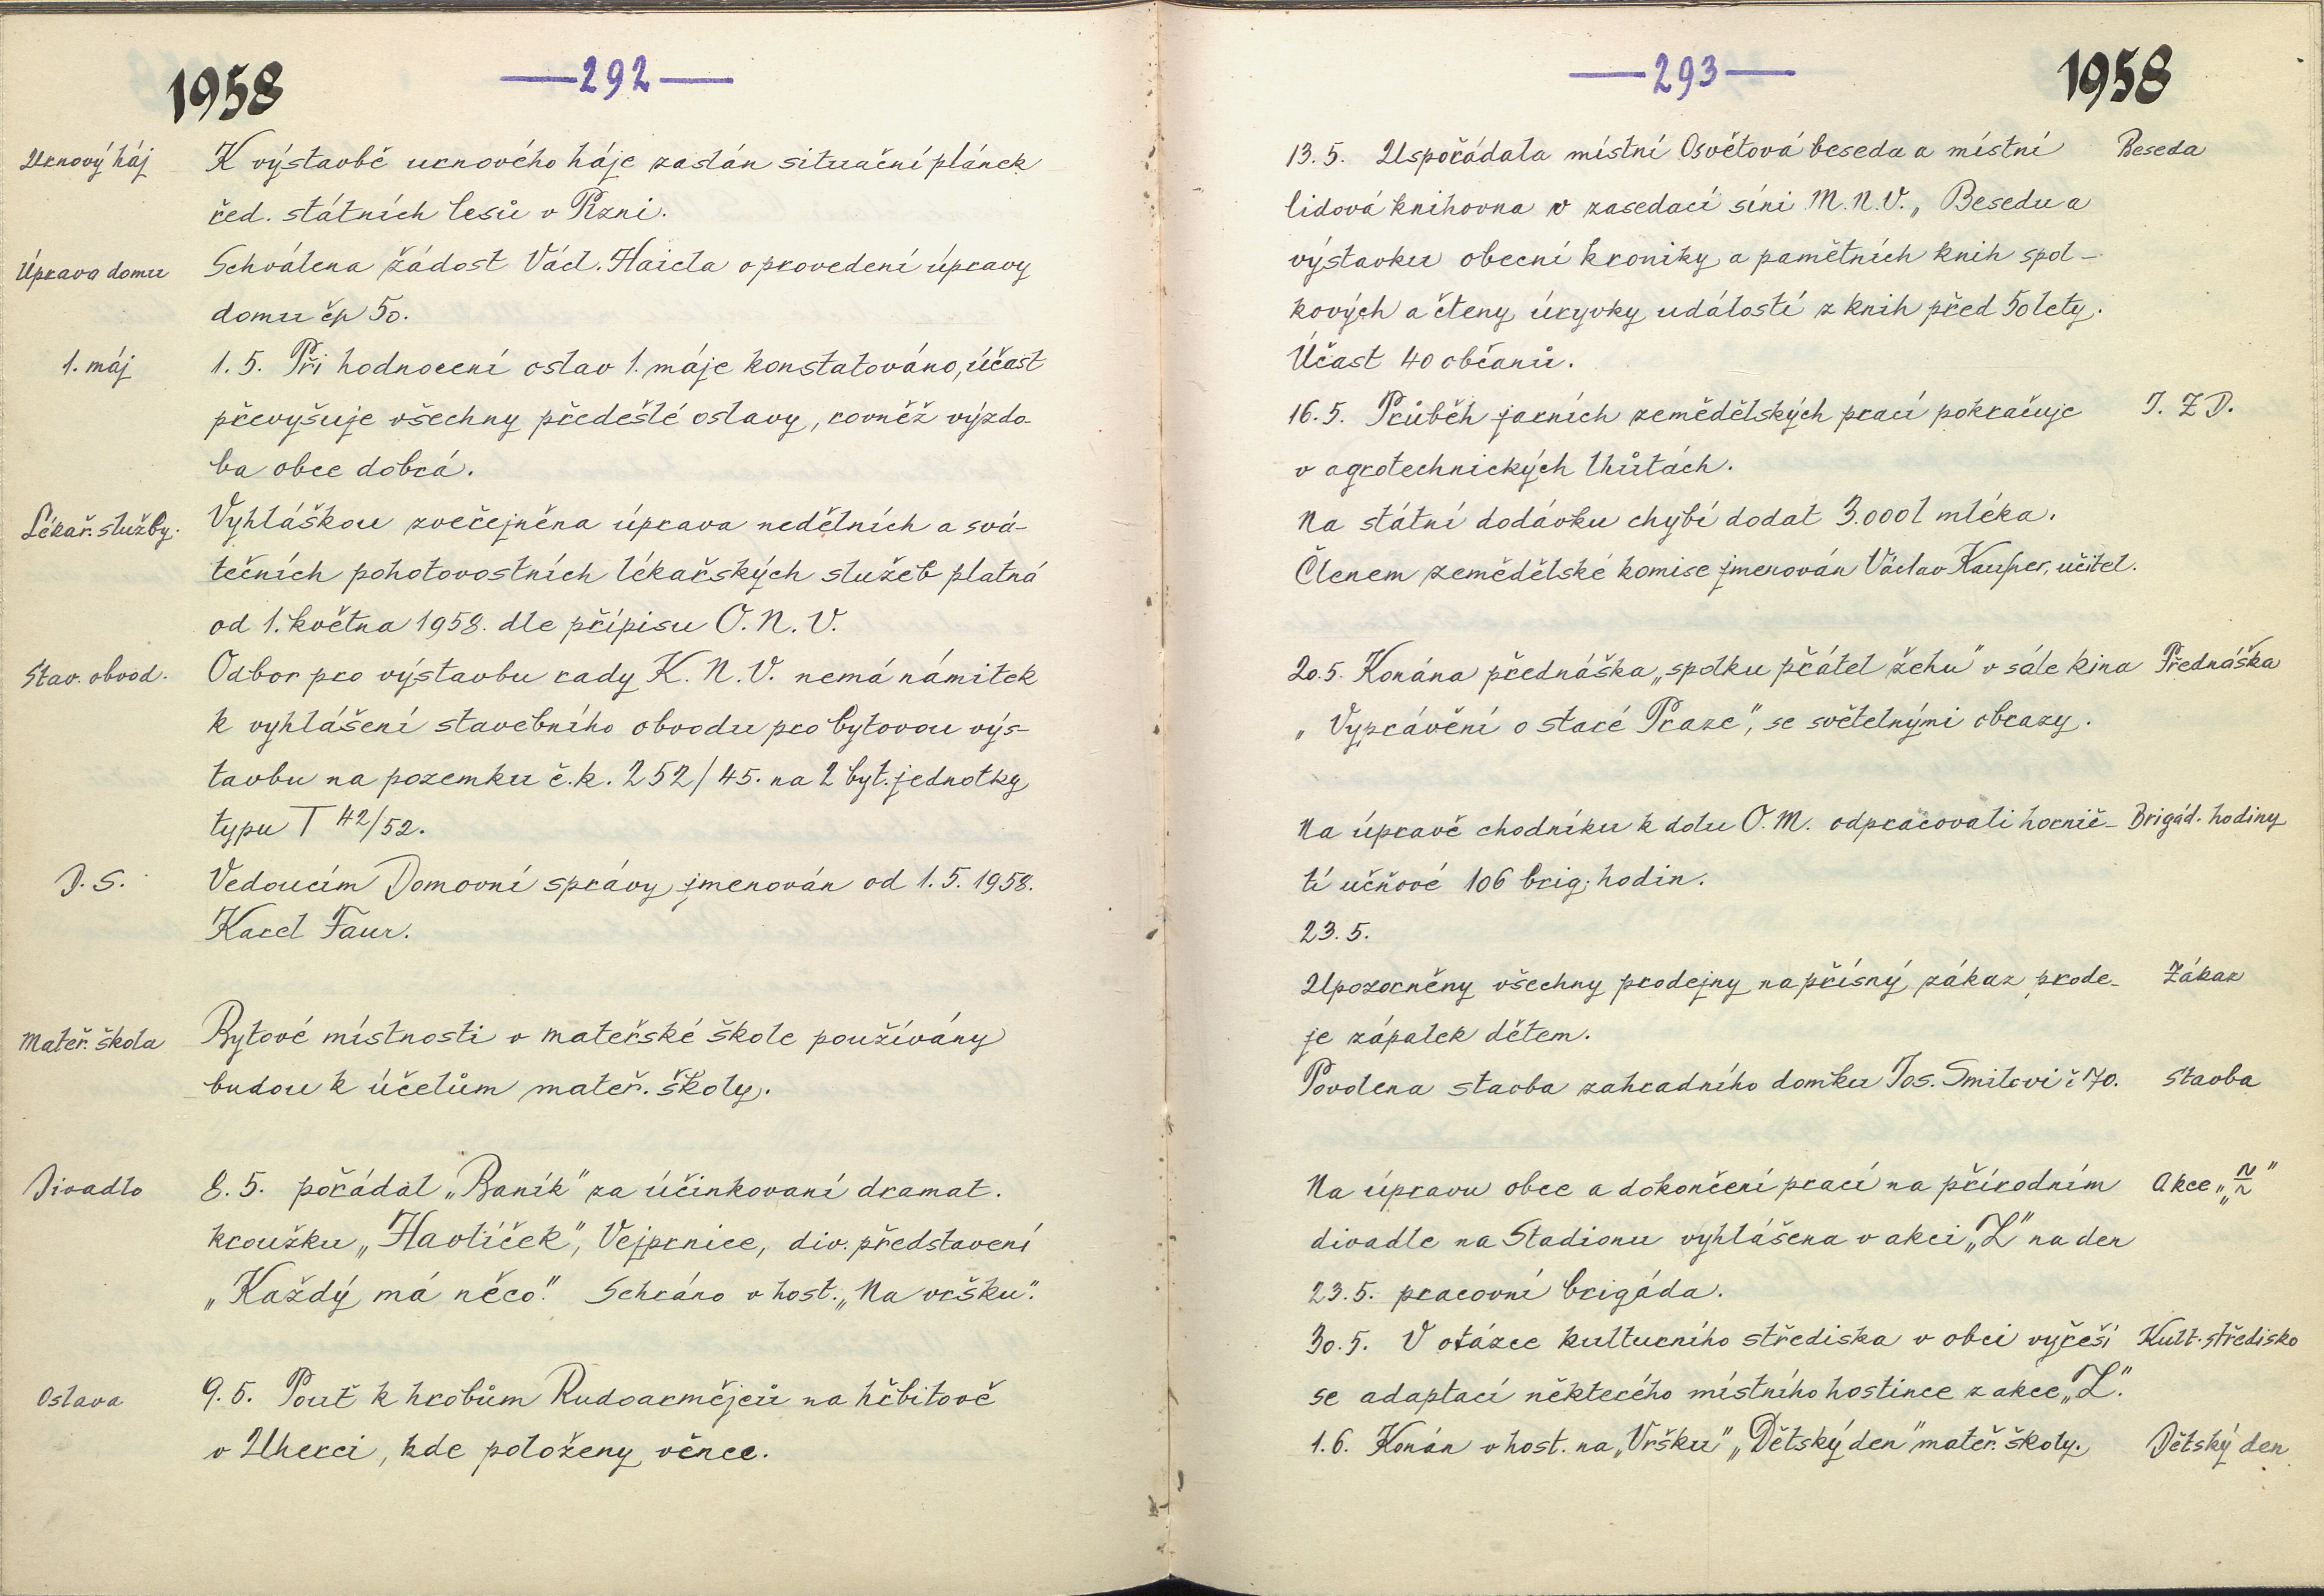 1958
— 292 —
Urnový háj
K výstavbě urnového háje zaslán situační plánek
řed. státních lesů v Plzni.
Úprava domu
Schválena žádost Václ. Haicla o provedení úpravy
domu čp 50.
1. máj
1. 5. Při hodnocení oslav 1. máje konstatováno, účast
převyšuje všechny předešlé oslavy, rovněž výzdo-
ba obce dobrá.
Lékař. služby.
Vyhláškou zveřejněna úprava nedělních a svá-
tečních pohotovostních lékařských služeb platná
od 1. května 1958. dle přípisu O. N. V.
Stav. obvod.
Odbor pro výstavbu rady K. N. V. nemá námitek
k vyhlášení stavebního obvodu pro bytovou výs-
tavbu na pozemku č.k. 252/45. na 2 byt. jednotky
typu T 42/52.
D. S.
Vedoucím Domovní správy jmenován od 1. 5. 1958.
Karel Faur.
Mateř. škola
Bytové místnosti v mateřské škole používány
budou k účelům mateř. školy.
Divadlo
8. 5. pořádal „Baník" za účinkovaní dramat.
kroužku „Havlíček", Vejprnice, div. představení
„Každý má něco." Sehráno v host. „Na vršku".
Oslava
9. 5. Pouť k hrobům Rudoarmějců na hřbitově
v Uherci, kde položeny věnce.
— 293 —
1958
13. 5. Uspořádala místní Osvětová beseda a místní
Beseda
lidová knihovna v zasedací síni M. N. V. „ Besedu a
výstavku obecní kroniky a pamětních knih spol-
kových a čteny úryvky událostí z knih před 50 lety.
Účast 40 občanů.
16. 5. Průběh jarních zemědělských prací pokračuje
J. Z D.
v agrotechnických lhůtách.
Na státní dodávku chybí dodat 3.000 l mléka.
Členem zemědělské komise jmenován Václav Kauper, učitel.
20. 5. Konána přednáška „spolku přátel žehu" v sále kina
Přednáška
„ Vyprávění o staré Praze", se světelnými obrazy.
Na úpravě chodníku k dolu O. M. odpracovali hornič-
Brigád. hodiny
tí učňové 106 brig. hodin.
23. 5.
Upozorněny všechny prodejny na přísný zákaz prode-
Zákaz
je zápalek dětem.
Povolena stavba zahradního domku Jos. Smilovi č 70.
Stavba
Na úpravu obce a dokončení prací na přírodním
Akce „Z"
divadle na Stadionu vyhlášena v akci „Z" na den
23. 5. pracovní brigáda.
30. 5. V otázce kulturního střediska v obci vyřeší
Kult. středisko
se adaptací některého místního hostince z akce „Z".
1. 6. Konán v host. na „Vršku" „Dětský den" mateř. školy.
Dětský den